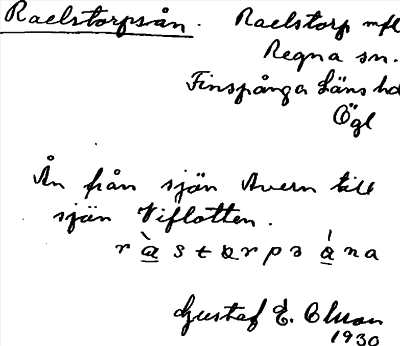 Raelstorpsån. Raelstorp mfl
Regna sn.
Finspånga Läns hd
Ögl
Ån från sjön Avern till
sjön Viflotten.
r à s t ɑ r p s å n a
Gustaf E. Olsson
1930